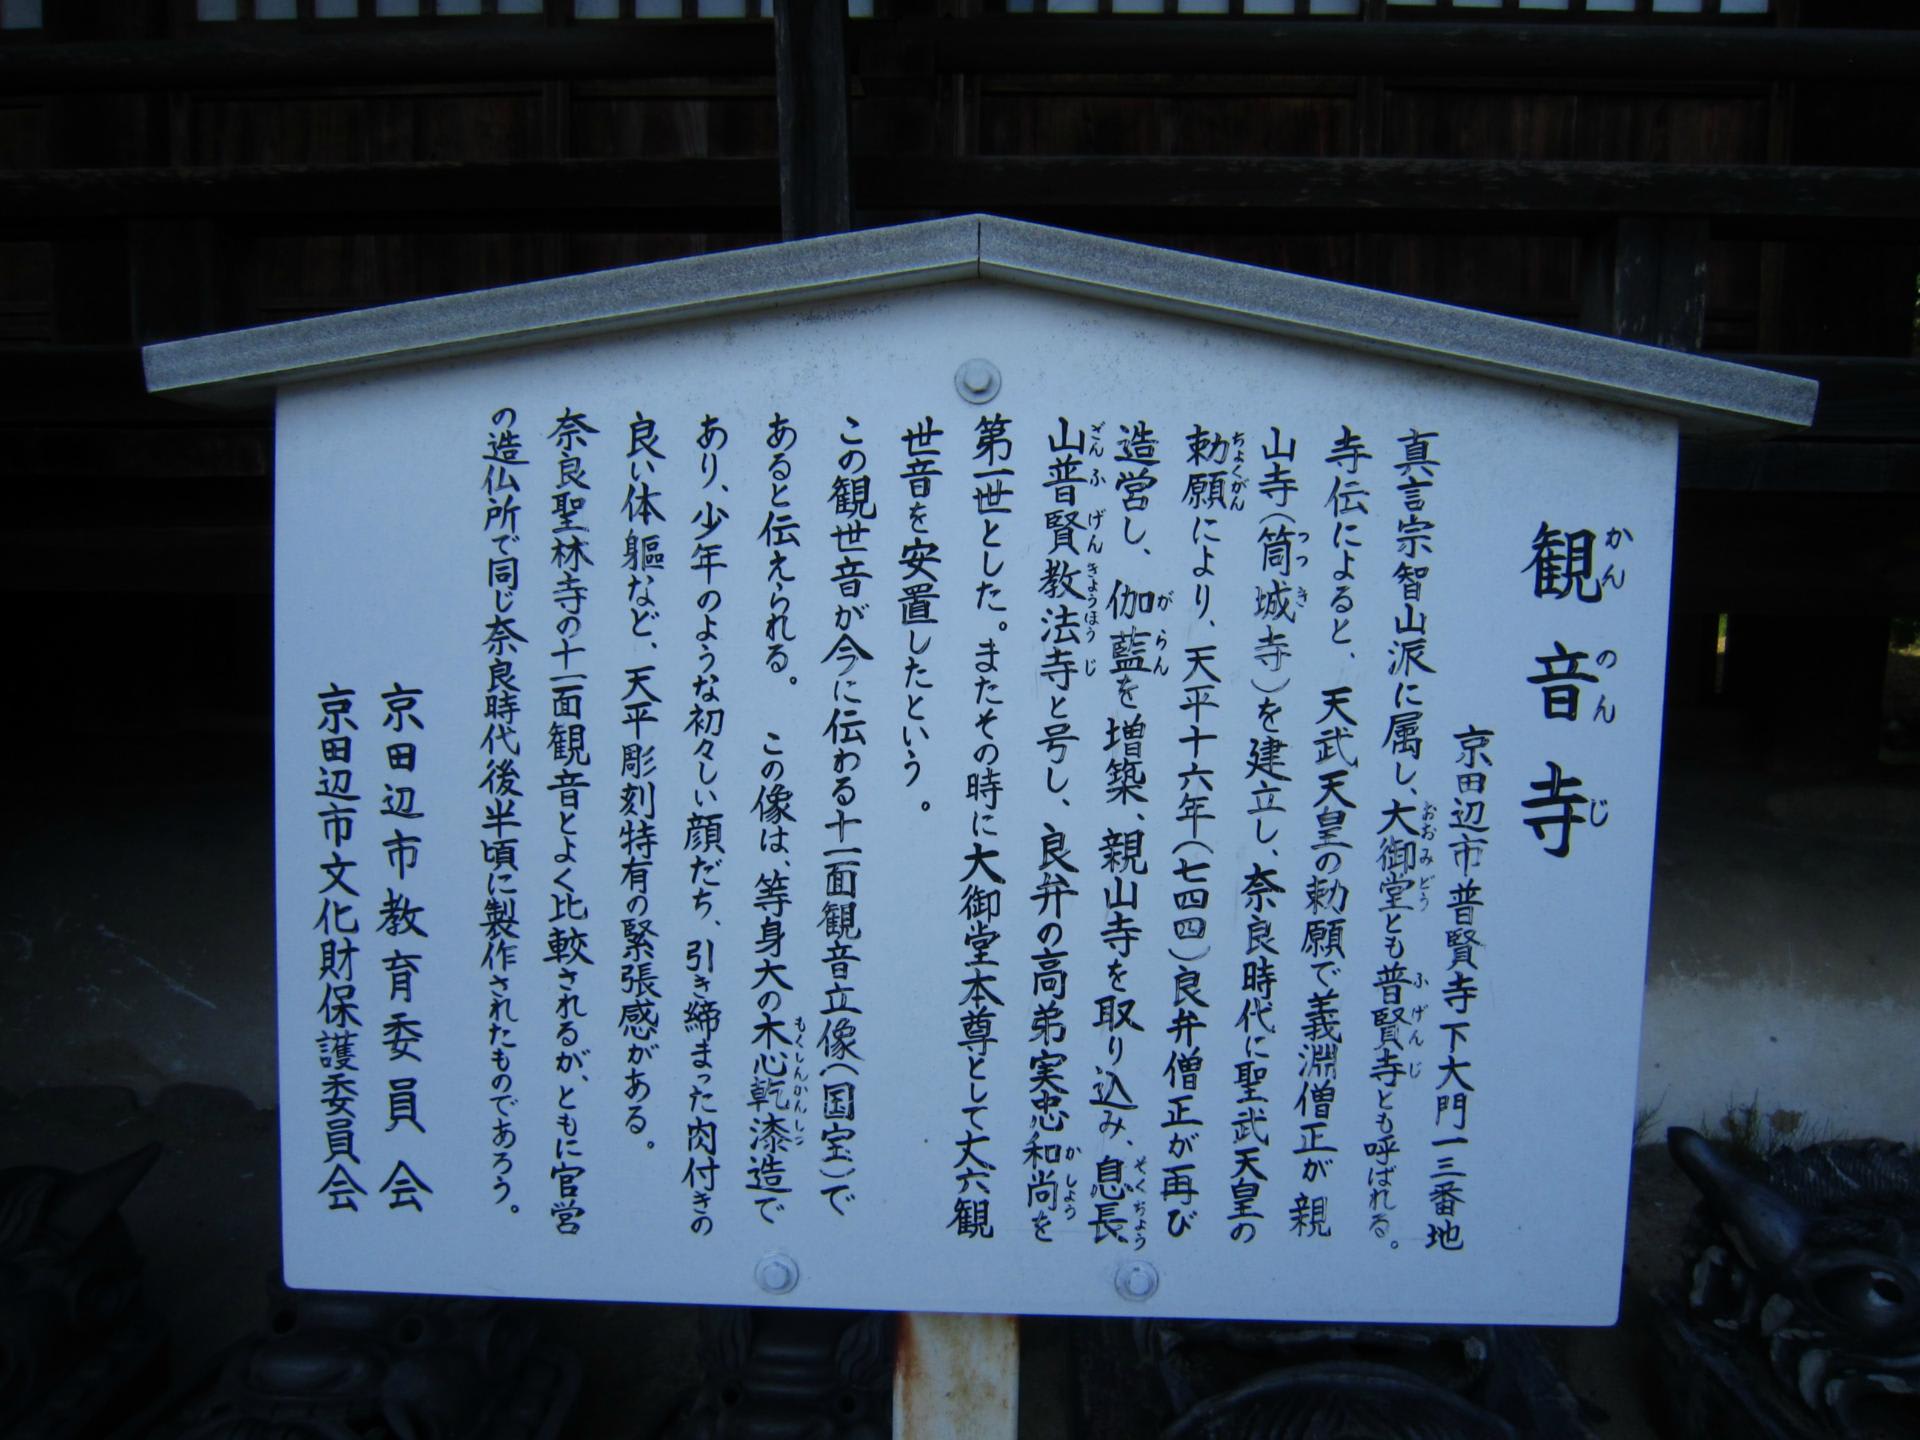 観音寺
京田辺市普賢寺下大門一三番地
真言宗智山派に属し、大御堂とも普賢寺とも呼ばれる。
寺伝によると、天武天皇の勅願で義淵僧正が親
山寺（筒城寺）を建立し、奈良時代に聖武天皇の
勅願により、天平十六年（七四四）良弁僧正が再び
造営し、伽藍を増築、親山寺を取り込み、息長
山普賢教法寺と号し、良弁の高弟実忠和尚を
第一世とした。またその時に大御堂本尊として丈六観
世音を安置したという。
この観世音が今に伝わる十一面観音立像（国宝）で
あると伝えられる。この像は、等身大の木心乾漆造で
あり、少年のような初々しい顔だち、引き締まった肉付きの
良い体軀など、天平彫刻特有の緊張感がある。
奈良聖林寺の十一面観音とよく比較されるが、ともに官営
の造仏所で同じ奈良時代後半頃に製作されたものであろう。
京田辺市教育委員会
京田辺市文化財保護委員会